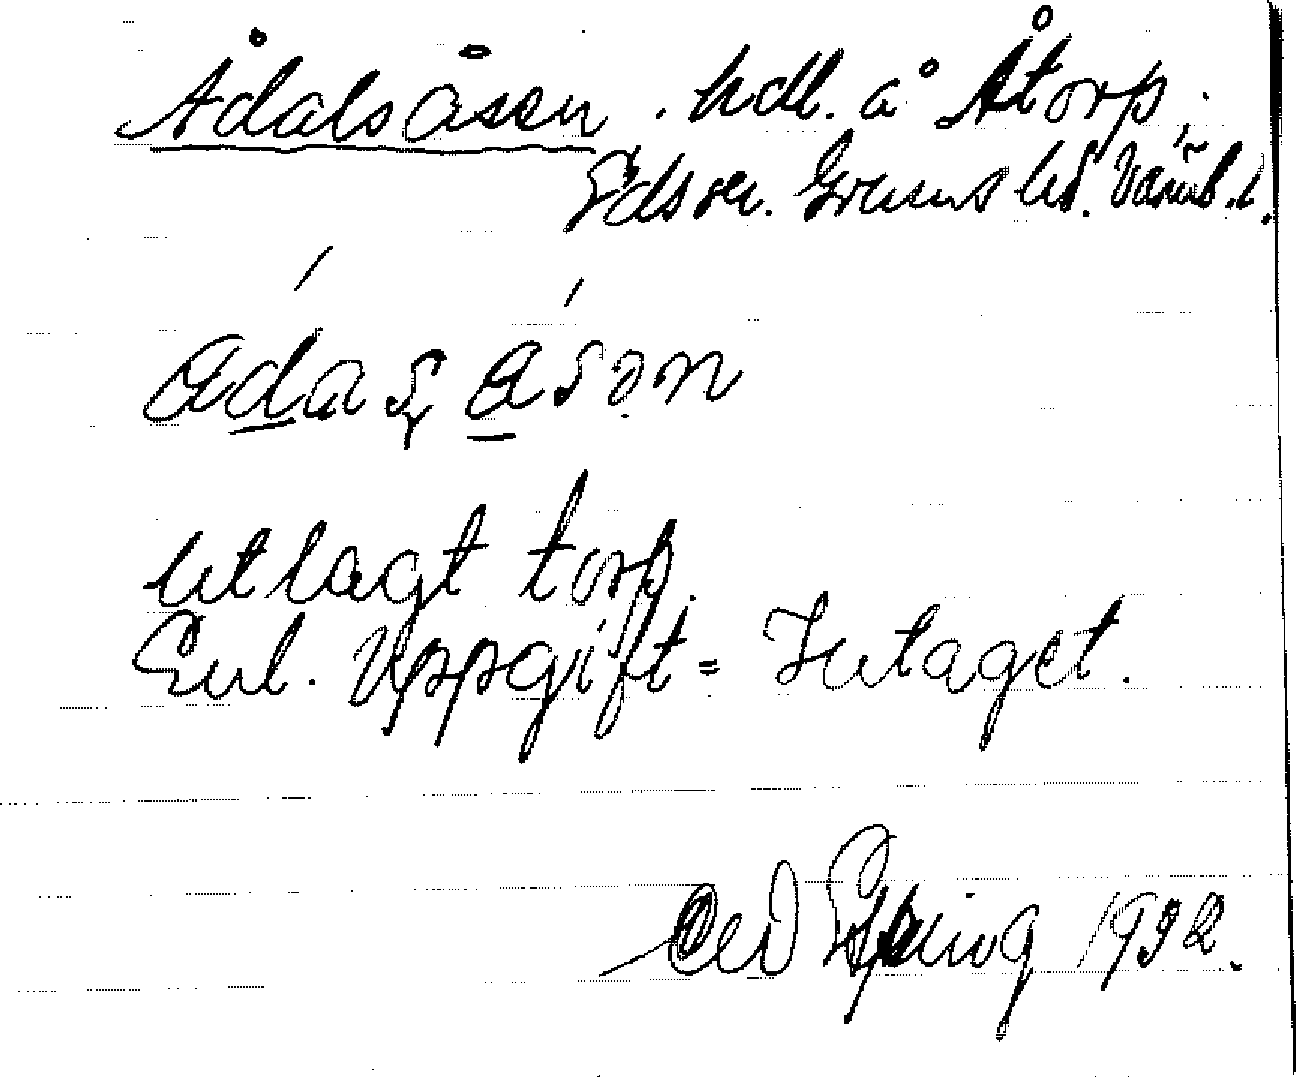 Ådalsåsen. hdl. å Åtorp.
Eds sn. Grums hd. Värml. l.
ɑdaʂ ɑsən
Utlagt torp.
Enl. Uppgift = Intaget.
1932.